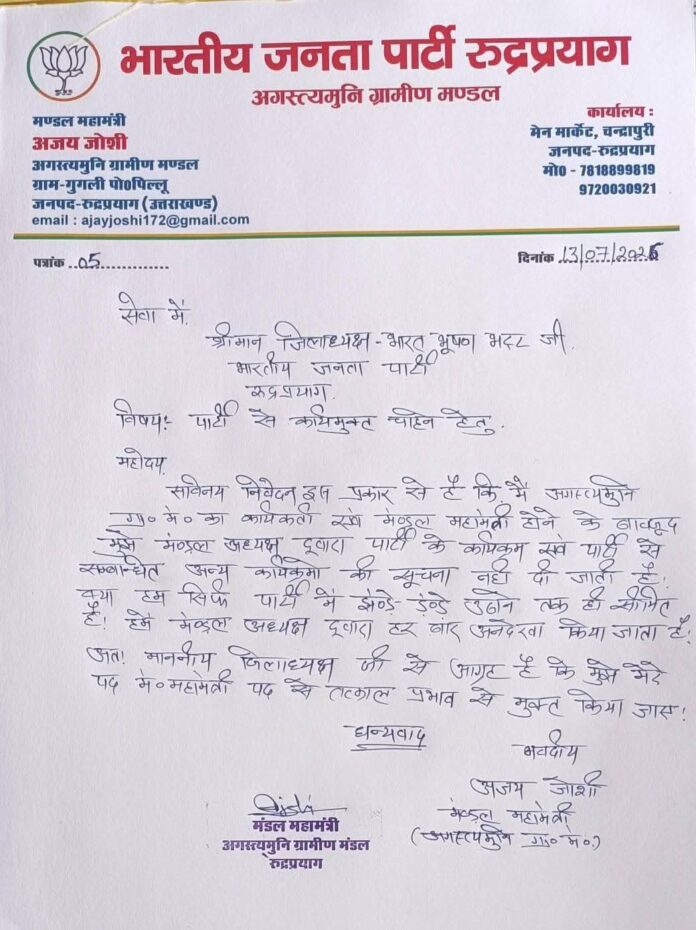 भारतीय जनता पार्टी रुद्रप्रयाग
अगस्त्यमुनि ग्रामीण मण्डल
मण्डल महामंत्री
अजय जोशी
अगस्त्यमुनि ग्रामीण मण्डल
ग्राम-गुगली पो0पिल्लू
जनपद-रुद्रप्रयाग (उत्तराखण्ड)
email : ajayjoshi172@gmail.com
कार्यालय :
मेन मार्केट, चन्द्रापुरी
जनपद-रुद्रप्रयाग
मो0 - 7818899819
9720030921
पत्रांक ..05..............
दिनांक ..13/07/2025
सेवा में,
श्रीमान जिलाध्यक्ष - भारत भूषण भट्ट जी.
भारतीय जनता पार्टी
रुद्रप्रयाग.
विषय:- पार्टी से कार्यमुक्त चाहने हेतु.
महोदय,
सविनय निवेदन इस प्रकार से है कि मैं अगस्त्यमुनि
ग्रा० मं० का कार्यकर्ता एवं मण्डल महामंत्री होने के बावजूद
मुझे मण्डल अध्यक्ष द्वारा पार्टी के कार्यक्रम एवं पार्टी से
सम्बन्धित अन्य कार्यक्रमो की सूचना नही दी जाती है!
क्या हम सिर्फ पार्टी में झण्डे-डण्डे उठाने तक ही सीमित
है! हमें मण्डल अध्यक्ष द्वारा हर बार अनदेखा किया जाता है!
अत! माननीय जिलाध्यक्ष जी से आग्रह है कि मुझे मेरे
पद मं० महामंत्री पद से तत्काल प्रभाव से मुक्त किया जाए!
धन्यवाद
भवदीय
अजय जोशी
मण्डल महामंत्री
(अगस्त्यमुनि ग्रा० मं०)
मंडल महामंत्री
अगस्त्यमुनि ग्रामीण मंडल
रुद्रप्रयाग